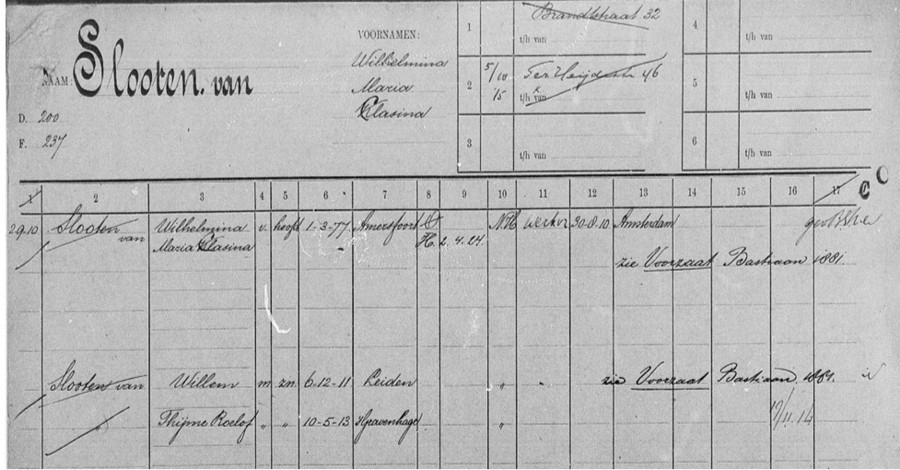 NAAM: Slooten. van
D. 200
F. 237
VOORNAMEN:
Wilhelmina
Maria
Clasina
1 Brandtstraat 32
t/h van
5/10 15 2 46
t/h van
3
t/h van
4
t/h van
5
t/h van
6
t/h van
1 2 3 4 5 6 7 8 9 10 11 12 13 14 15 16 17
29.10 Slooten van Wilhelmina v. hooft 1-3-77 Amersfoort N.H. 30-8-10 Amsterdam
Maria Clasina H. 2.4.24.
zie Voorzaat Bastiaan 1881.
Slooten van Willem m. zn. 6-12-11 Leiden " zie Voorzaat Bastiaan. 1881.
" Thijme Roelof " " 10-5-13 's Gravenhage " 11.14